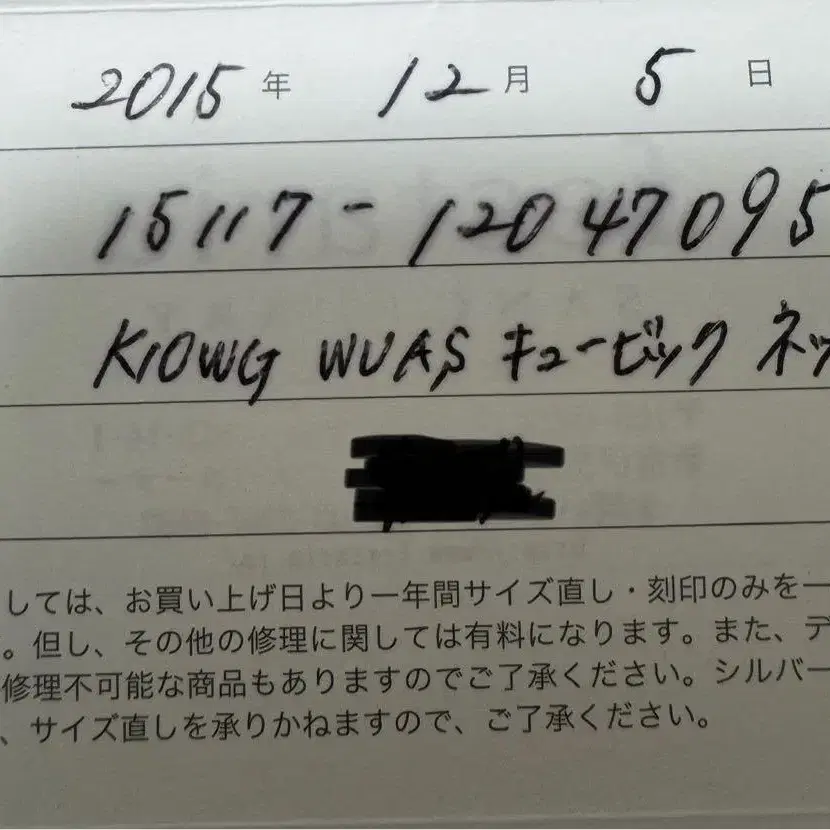 2015年 12月 5日
15117-12047095
K10WG WUAS キュービック ネッ
しては、お買い上げ日より一年間サイズ直し・刻印のみを一
。但し、その他の修理に関しては有料になります。また、デ
修理不可能な商品もありますのでご了承ください。シルバー
、サイズ直しを承りかねますので、ご了承ください。